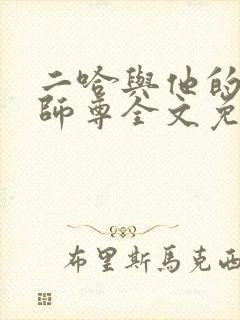 二哈與他的
師尊全文免
布里斯馬克西